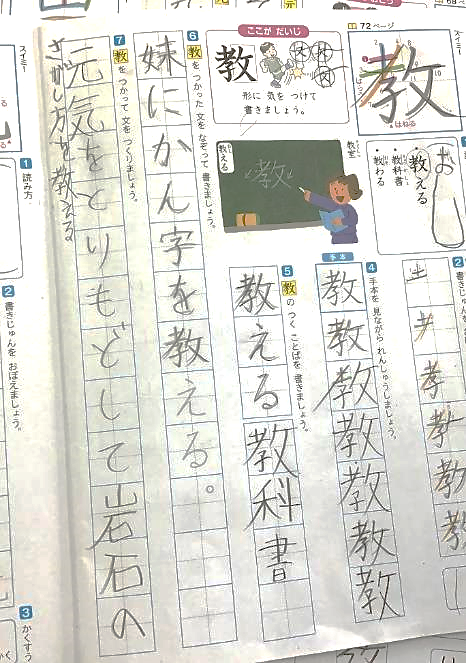 72ページ
教
はねる
おしえる
・教える
・教科書
・教わる
ここが だいじ
教
形に 気を つけて
書きましょう。
教室
教える
教
2
4 手本を 見ながら れんしゅうしましょう。
手本
教
教
教
教
教
教
教
5 教の つく ことばを 書きましょう。
教える
教科書
6 教を つかった 文を なぞって 書きましょう。
妹にかん字を教える。
7 教を つかって 文を つくりましょう。
元気をとりもどして岩石の
さがし方を教える
スイミー
1 読み方
2 書きじゅんを おぼえましょう。
3 かくすう